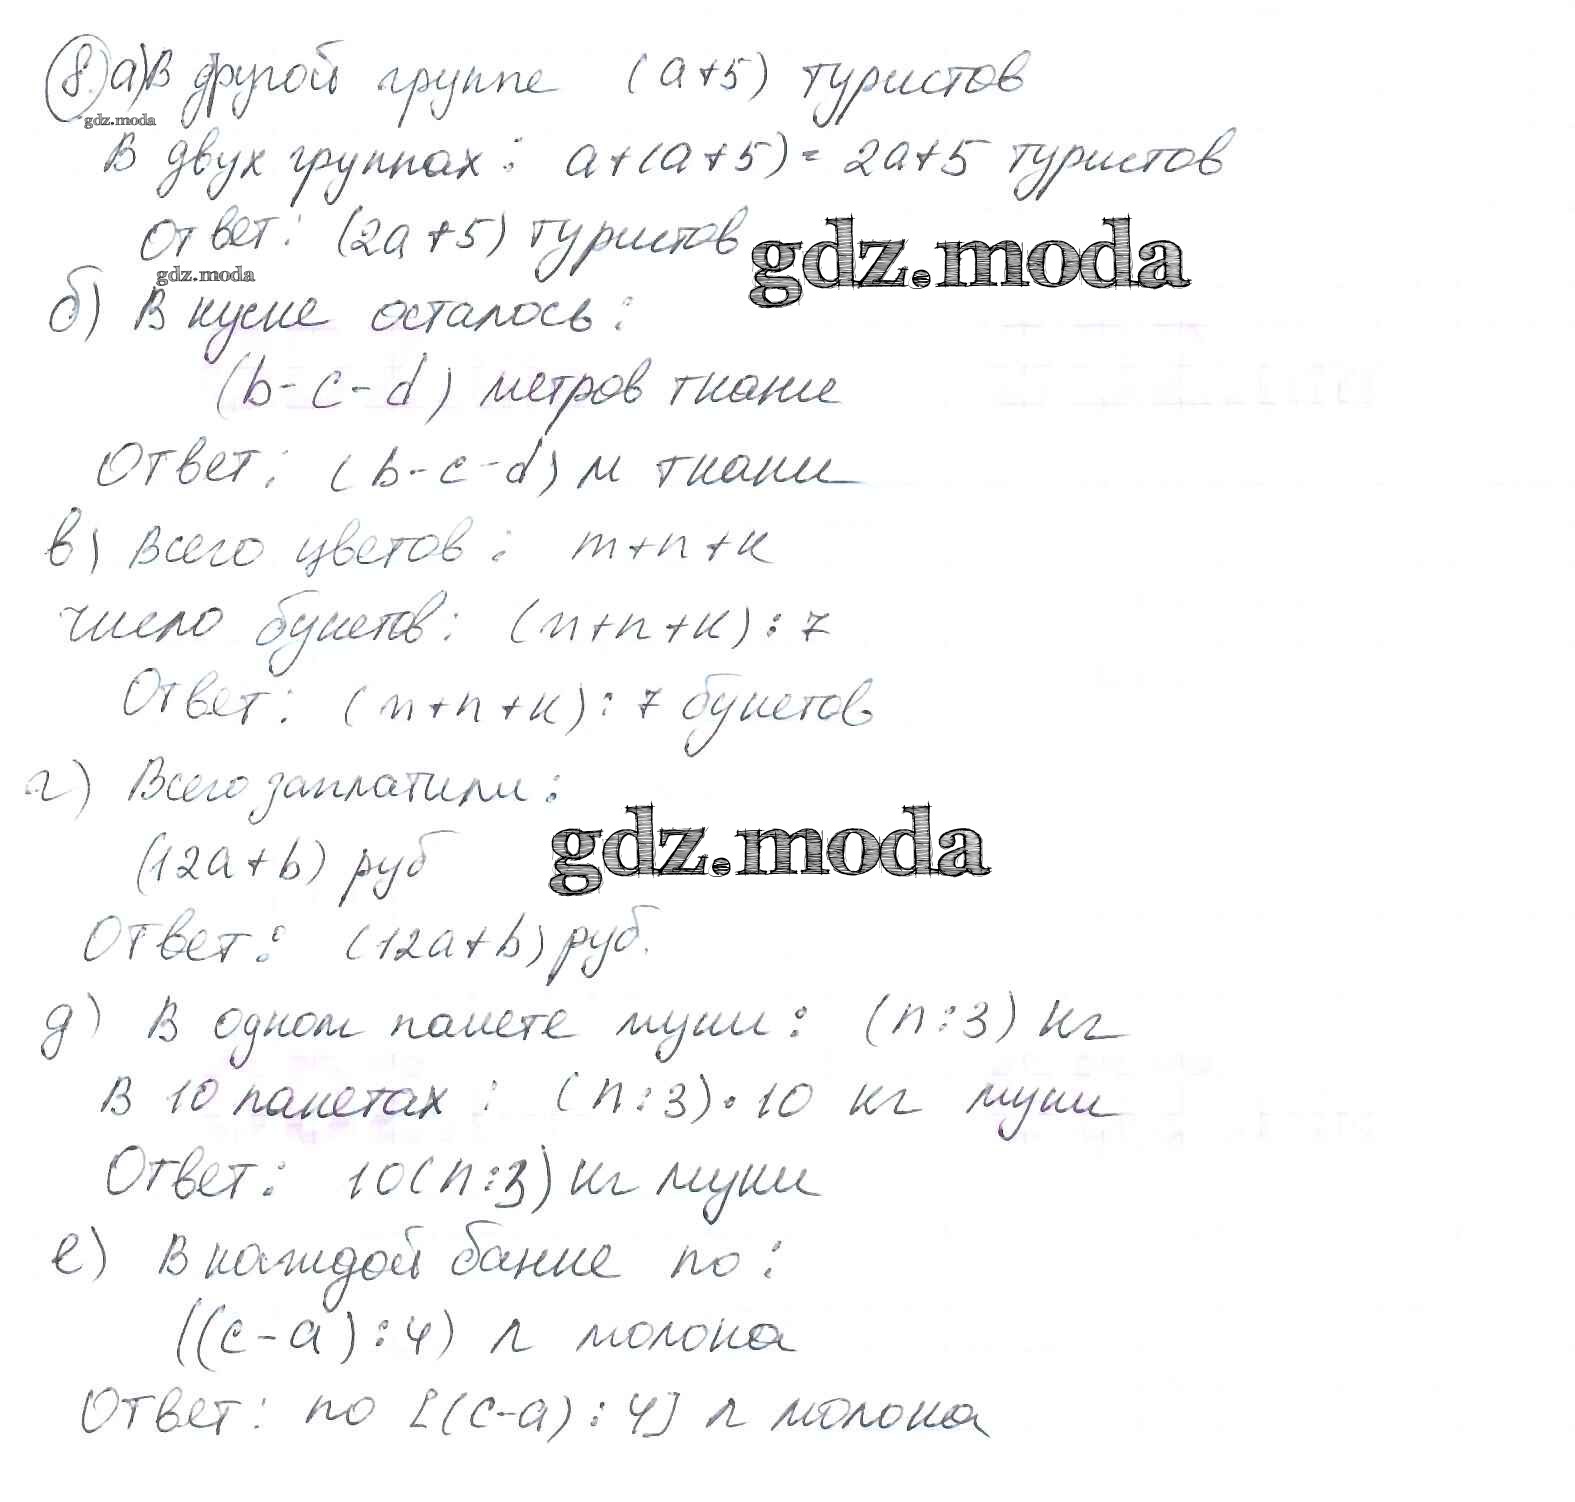 8. а) В другой группе (a+5) туристов
gdz.moda
В двух группах: a+(a+5)=2a+5 туристов
Ответ: (2a+5) туристов
gdz.moda
gdz.moda
б) В куске осталось:
(b-c-d) метров ткани
Ответ: (b-c-d) м ткани
в) Всего цветов: m+n+к
число букетов: (m+n+к):7
Ответ: (m+n+к):7 букетов
г) Всего заплатили:
(12a+b) руб
gdz.moda
Ответ: (12a+b) руб.
д) В одном пакете муки: (n:3) кг
В 10 пакетах: (n:3)·10 кг муки
Ответ: 10(n:3) кг муки
е) В каждой банке по:
((c-a):4) л молока
Ответ: по [(c-a):4] л молока